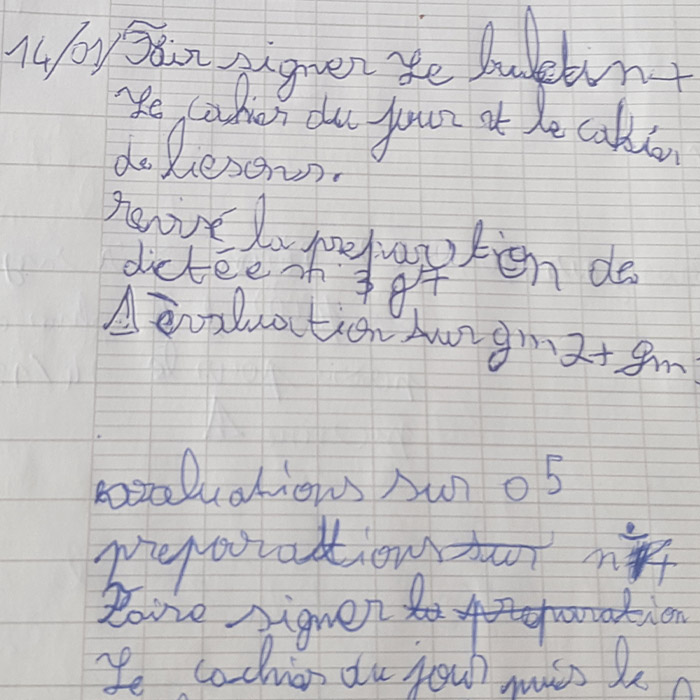 14/01/ Fair signer le buletin +
le cahier du jour et le cahier
de liesons.
revisé la preparation de
dictée n: 7 g7
⚠ évaluation sur gm2 + gm
evaluations sur o5
preparattions sur n°4
Faire signer la preparation
Le cachier du jour puis le